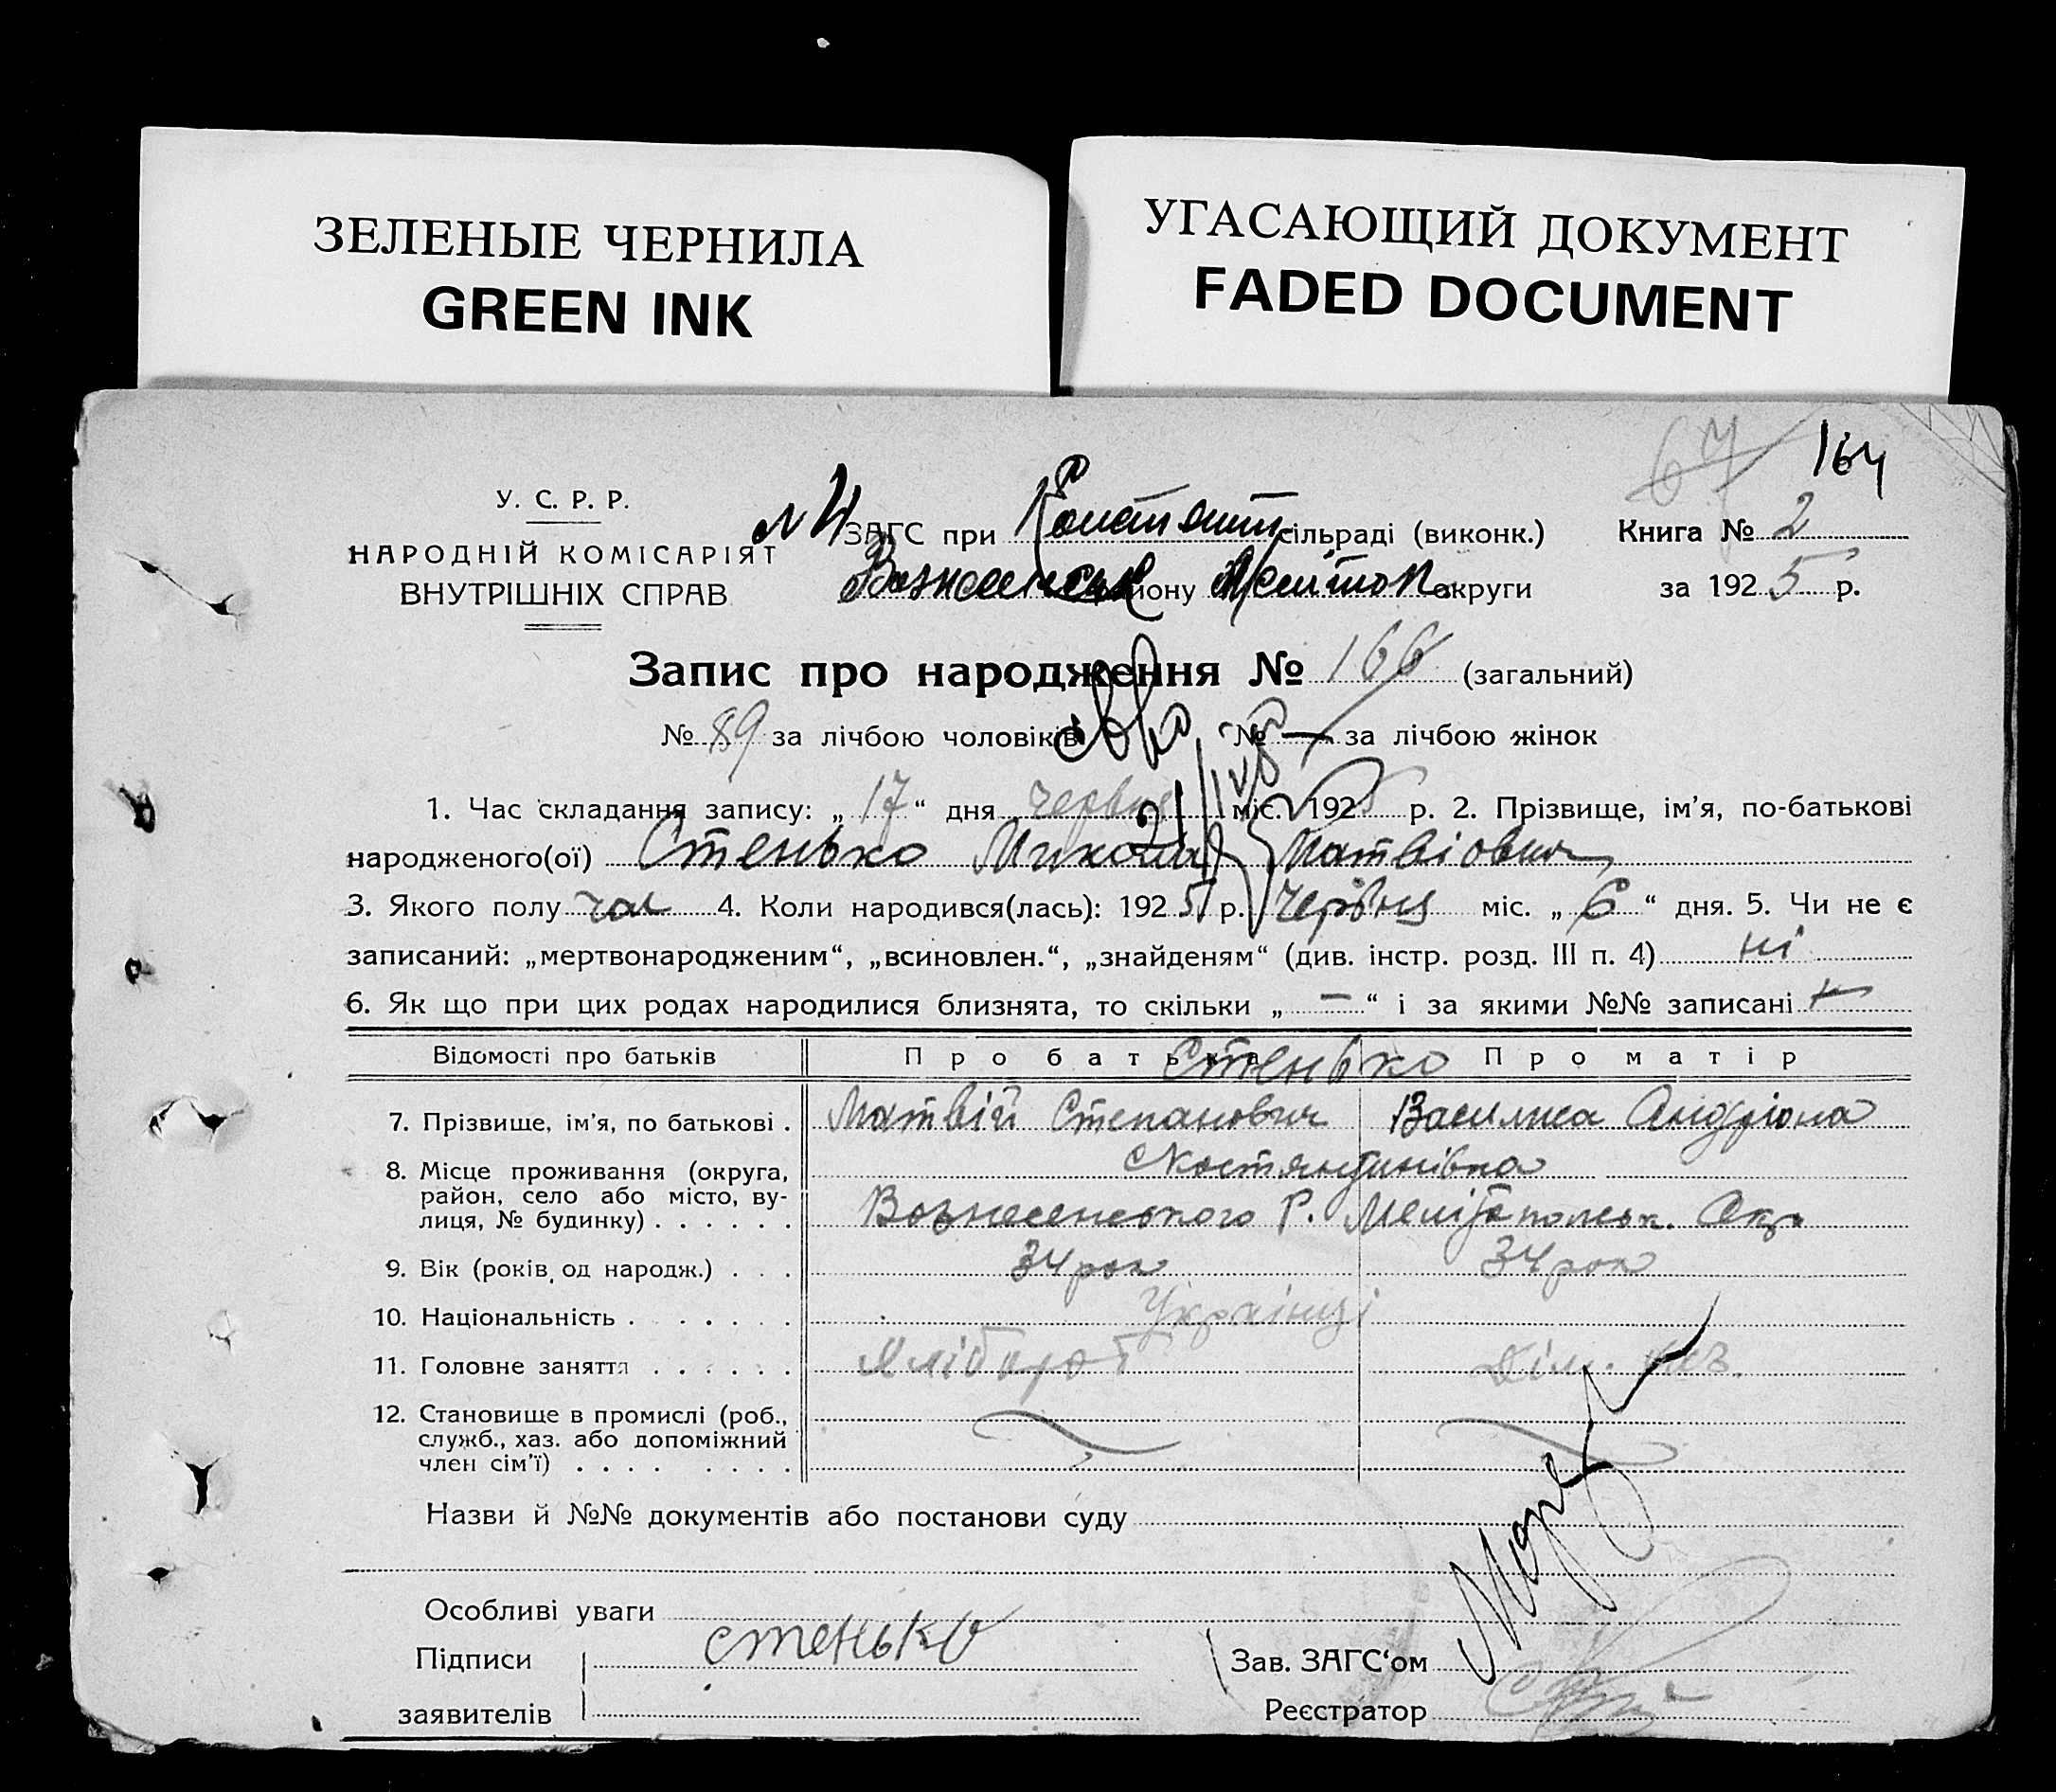 ЗЕЛЕНЫЕ ЧЕРНИЛА
GREEN INK
УГАСАЮЩИЙ ДОКУМЕНТ
FADED DOCUMENT
67 164
У. С. Р. Р.
НАРОДНІЙ КОМІСАРІЯТ
ВНУТРІШНІХ СПРАВ
ЗАГС при Констянт сільраді (виконк.)
Вознесенськ району Мелітоп округи
Книга № 2
за 1925 р.
Запис про народження № 166 (загальний)
№ 89 за лічбою чоловіків № — за лічбою жінок
1. Час складання запису: „17“ дня червня міс. 1925 р. 2. Прізвище, ім’я, по-батькові
народженого(ої) Стенько Микола Матвіович
3. Якого полу чол 4. Коли народився(лась): 1925 р. Червня міс. „6“ дня. 5. Чи не є
записаний: „мертвонародженим“, „всиновлен.“, „знайденям“ (див. інстр. розд. III п. 4) ні
6. Як що при цих родах народилися близнята, то скільки „—“ і за якими №№ записані —
Відомості про батьків Про батька Про матір
Стенько
7. Прізвище, ім’я, по батькові . Матвій Степанович Василиса Андріовна
8. Місце проживання (округа, район, село або місто, вулиця, № будинку) . . . . . . с Костянтинівка
Вознесенського Р. Мелітопольськ. Окр
9. Вік (років од народж.) . . . 34 рок 34 рок
10. Національність . . . . . . . Українці
11. Головне заняття . . . . . . Хлібороб
12. Становище в промислі (роб., служб., хаз. або допоміжний член сім’ї) . . . . . . . .
Назви й №№ документів або постанови суду
Особливі уваги
Підписи заявителів стенько
Зав. ЗАГС‘ом
Реєстратор